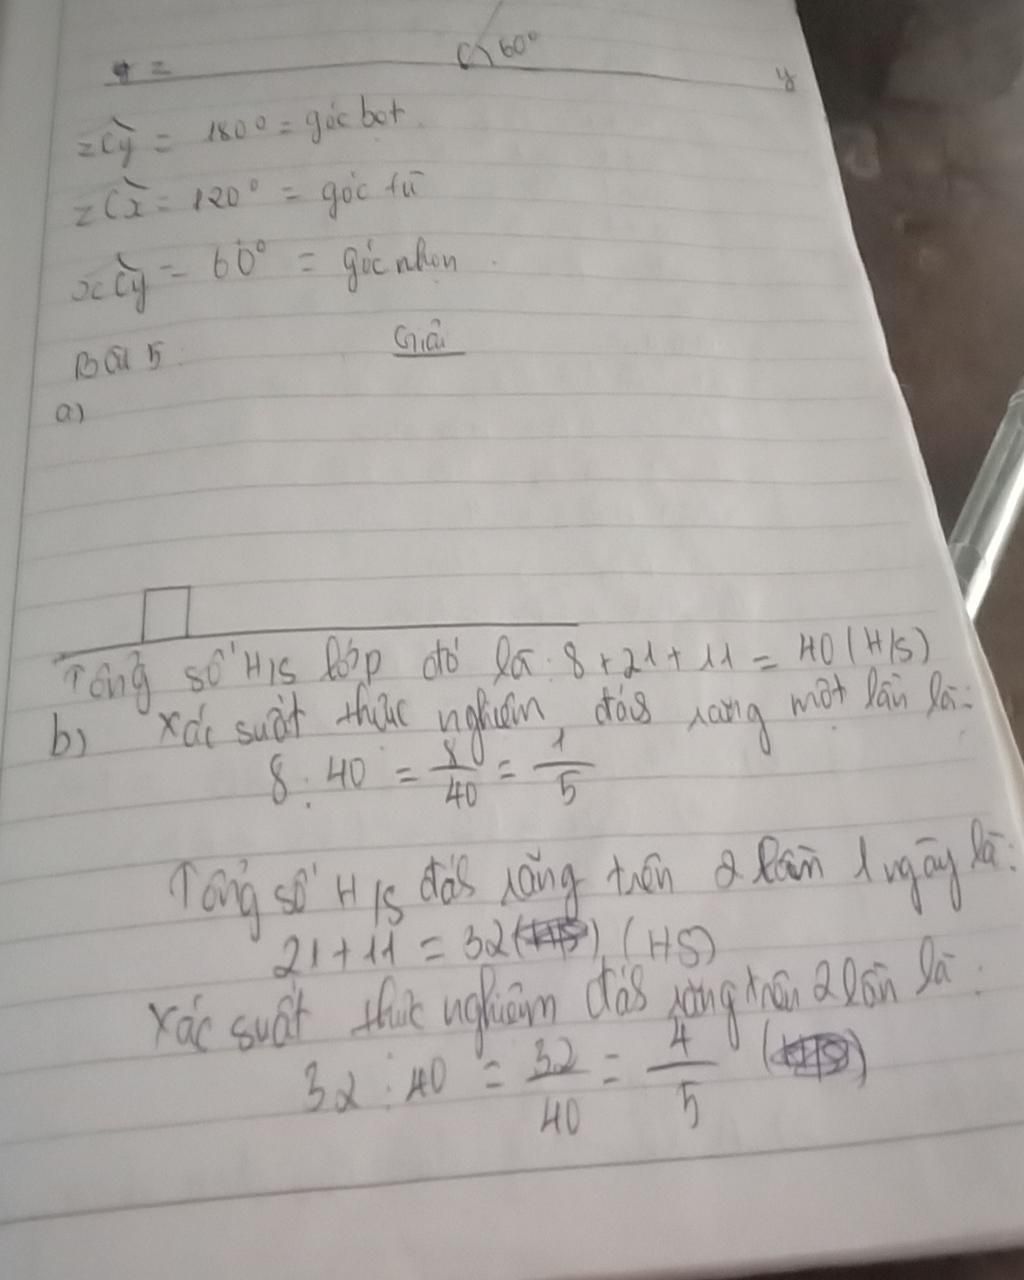 z 60° y
zCy = 180° = góc bẹt.
zCx = 120° = góc tù
xCy = 60° = góc nhọn.
Bài 5 Giải
a)
Tổng số H/S lớp đó là: 8 + 21 + 11 = 40 (H/S)
b) Xác suất thực nghiệm đáş răng một lần là:
8 : 40 = 8/40 = 1/5
Tổng số H/S đáş răng trên 2 lần 1 ngày là:
21 + 11 = 32 (HS)
Xác suất thực nghiệm đáş răng trên 2 lần là:
32 : 40 = 32/40 = 4/5